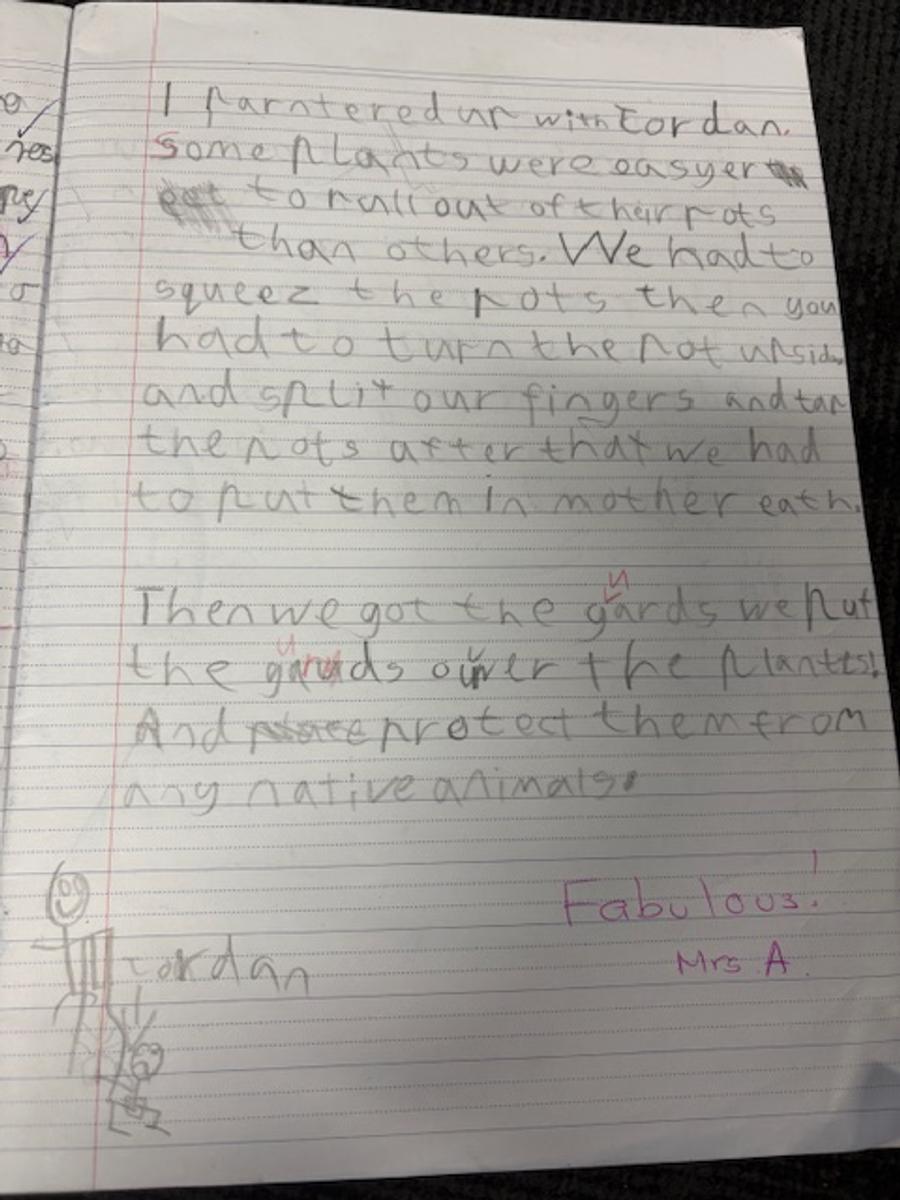 a
res
ny
I parntered up with Eordan.
some plants were easyer
to pull out of their pots
than others. We had to
squeez the pots then you
had to turn the pot upside
and split our fingers and tap
the pots after that we had
to put them in mother eath.
Then we got the guards we put
the guards over the plantts!
And protect them from
any native animals.
Fabulous!
Eordan
Mrs A.